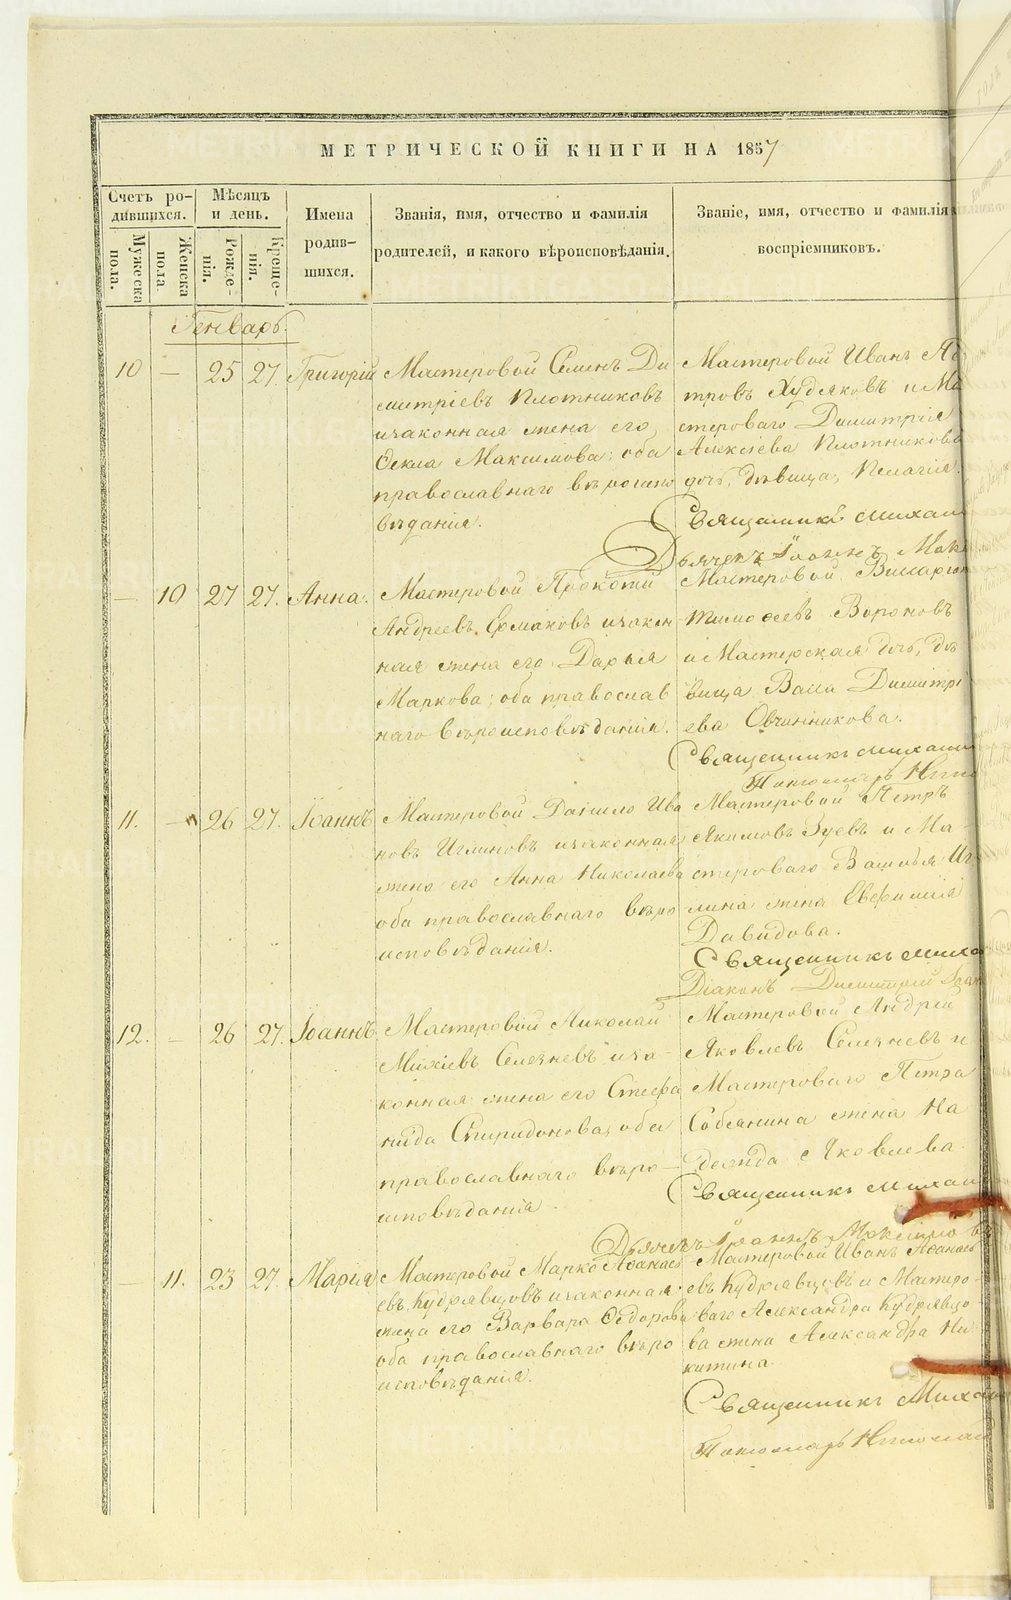 МЕТРИЧЕСКОЙ КНИГИ НА 1857
Счетъ ро-
дившихся.
Мужеска
пола.
Женска
пола
Мѣсяцъ
и день.
Рожде-
нія.
Креще-
нія.
Имена
родив-
шихся.
Званія, имя, отчество и фамилія
родителей, и какого вѣроисповѣданія.
Званіе, имя, отчество и фамилія
воспріемниковъ.
Генварь.
10 — 25 27. Григорій
Мастеровой Семенъ Ди
митріевъ Плотниковъ
изаконная жена его
Ѳекла Максимова; оба
православнаго вѣроиспо
вѣданія.
Мастеровой Иванъ
тровъ Худяковъ и Ма
стероваго Димитрія
Алексіева Плотникова
дочь, дѣвица, Пелагія.
Священникъ Михаи
Дьячекъ Іоаннъ Мак
— 10 27 27. Анна.
Мастеровой Прокопій
Андреевъ Ермаковъ изакон
ная жена его Дарья
Маркова; оба православ
наго вѣроисповѣданія.
Мастеровой Виссаріон
Тимоѳеевъ Вороновъ
и Мастерская дочь, дѣ
вица Васса Димитрі
ева Овчинникова.
Священникъ Михаи
Пономарь Нико
11. — 26 27. Іоаннъ
Мастеровой Даніило Ива
новъ Иглиновъ изаконная
жена его Анна Николаева
оба православнаго вѣро
исповѣданія.
Мастеровой Петръ
Якимовъ Зуевъ и Ма-
стероваго Василья Иг
лина жена Евфимія
Давидова.
Священникъ Миха
Діаконъ Димитрій
12. — 26 27. Іоаннъ
Мастеровой Николай
Михіевъ Селезневъ иза-
конная жена его Стефа
нида Спиридонова, оба
православнаго вѣро—
исповѣданія.
Мастеровой Андрей
Яковлевъ Селезневъ и
Мастероваго Петра
Собянина жена На
дежда Яковлева.
Священникъ Михаи
Дьячекъ Іоаннъ Максимовъ
— 11. 23 27. Марія
Мастеровой Марко Аѳанась
евъ Кудрявцовъ изаконная
жена его Варвара Ѳедорова
оба православнаго вѣро
исповѣданія.
Мастеровой Иванъ Аѳанась
евъ Кудрявцевъ и Мастеро-
ваго Александра Кудрявцо-
ва жена Александра Ни-
китина.
Священникъ Миха
Пономарь Николай